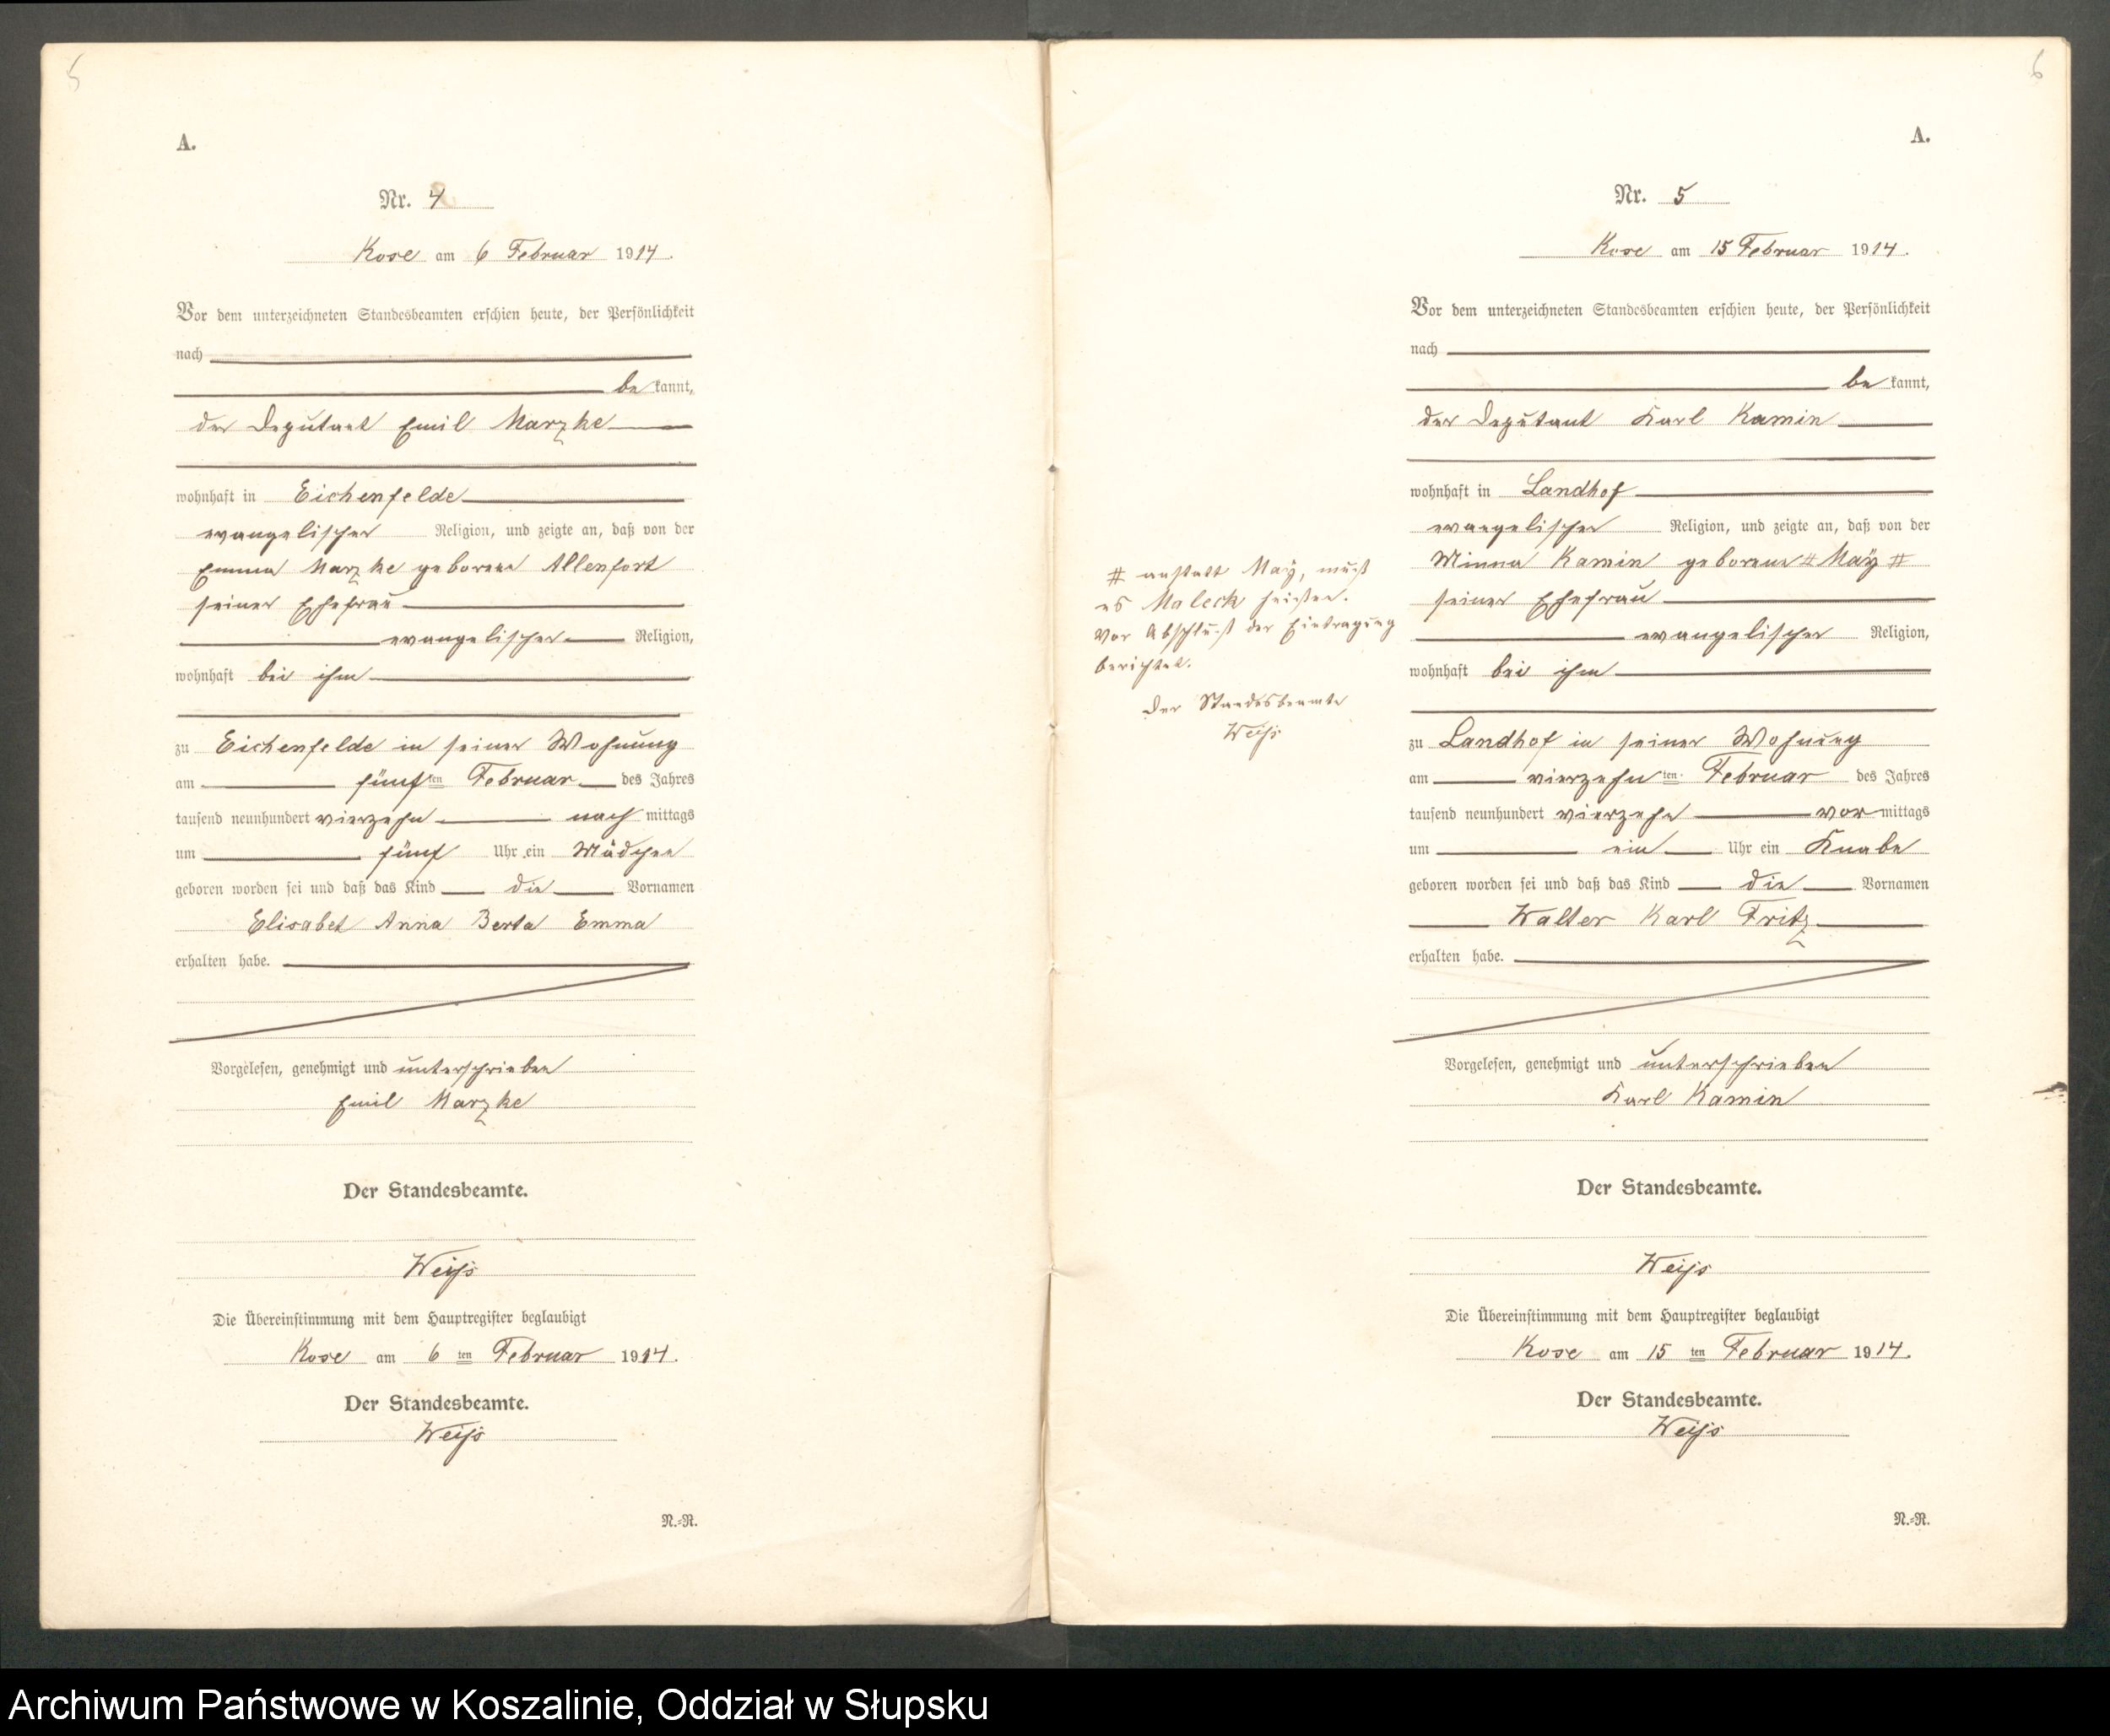 5
A.
Nr. 4
Kose am 6 Februar 1914.
Vor dem unterzeichneten Standesbeamten erschien heute, der Persönlichkeit
nach
be kannt,
der Deputant Emil Marzke
wohnhaft in Eichenfelde
evangelischer Religion, und zeigte an, daß von der
Emma Marzke geborene Allenfort
seiner Ehefrau
evangelischer Religion,
wohnhaft bei ihm
zu Eichenfelde in seiner Wohnung
am fünften Februar des Jahres
tausend neunhundert vierzehn nach mittags
um fünf Uhr ein Mädchen
geboren worden sei und daß das Kind die Vornamen
Elisabet Anna Berta Emma
erhalten habe.
Vorgelesen, genehmigt und unterschrieben
Emil Marzke
Der Standesbeamte.
Weiß
Die Übereinstimmung mit dem Hauptregister beglaubigt
Kose am 6 ten Februar 1914.
Der Standesbeamte.
Weiß
N.-R.
6
A.
Nr. 5
Kose am 15 Februar 1914.
Vor dem unterzeichneten Standesbeamten erschien heute, der Persönlichkeit
nach
be kannt,
der Deputant Karl Kamin
wohnhaft in Landhof
evangelischer Religion, und zeigte an, daß von der
Minna Kamin geborene # May #
seiner Ehefrau
evangelischer Religion,
wohnhaft bei ihm
zu Landhof in seiner Wohnung
am vierzehn ten. Februar des Jahres
tausend neunhundert vierzehn vor mittags
um ein Uhr ein Knabe
geboren worden sei und daß das Kind die Vornamen
Walter Karl Fritz
erhalten habe.
Vorgelesen, genehmigt und unterschrieben
Karl Kamin
Der Standesbeamte.
Weiß
Die Übereinstimmung mit dem Hauptregister beglaubigt
Kose am 15 ten Februar 1914.
Der Standesbeamte.
Weiß
N.-R.
# anstatt May, muß
es Maleck heißen.
Vor Abschluß der Eintragung
berichtet.
Der Standesbeamte
Weiß
Archiwum Państwowe w Koszalinie, Oddział w Słupsku